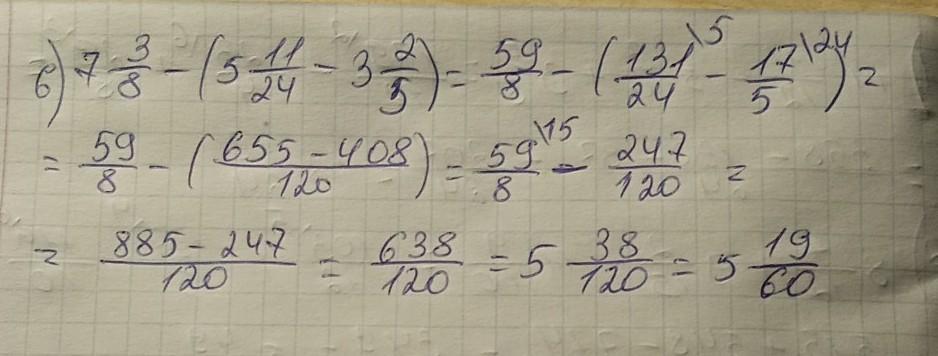 б) 7 3/8 - (5 11/24 - 3 2/5) = 59/8 - (131/24 \5 - 17/5 \24) =
= 59/8 - (655 - 408/120) = 59/8 \15 - 247/120 =
= 885 - 247/120 = 638/120 = 5 38/120 = 5 19/60